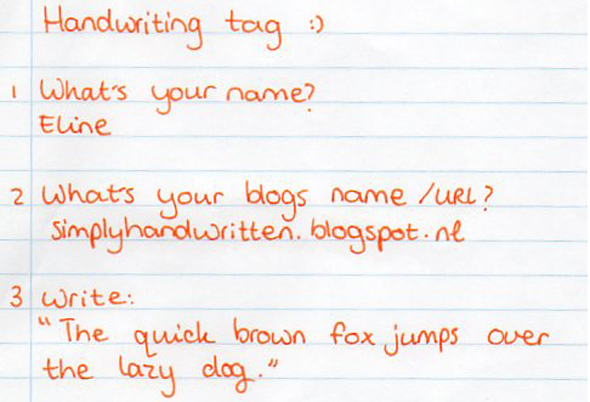 Handwriting tag :)
1 What's your name?
Eline
2 What's your blogs name /URL?
simplyhandwritten.blogspot.nl
3 Write:
"The quick brown fox jumps over
the lazy dog."